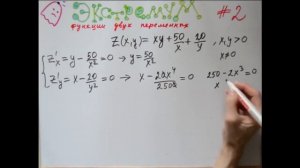 Экстремум #2
функции двух переменных
Z(x,y) = xy + 50/x + 20/y , x,y>0
x≠0
Z'x = y - 50/x² = 0 → y = 50/x²
Z'y = x - 20/y² = 0 → x - 20x⁴/2500 = 0 250 - 2x³ = 0
x